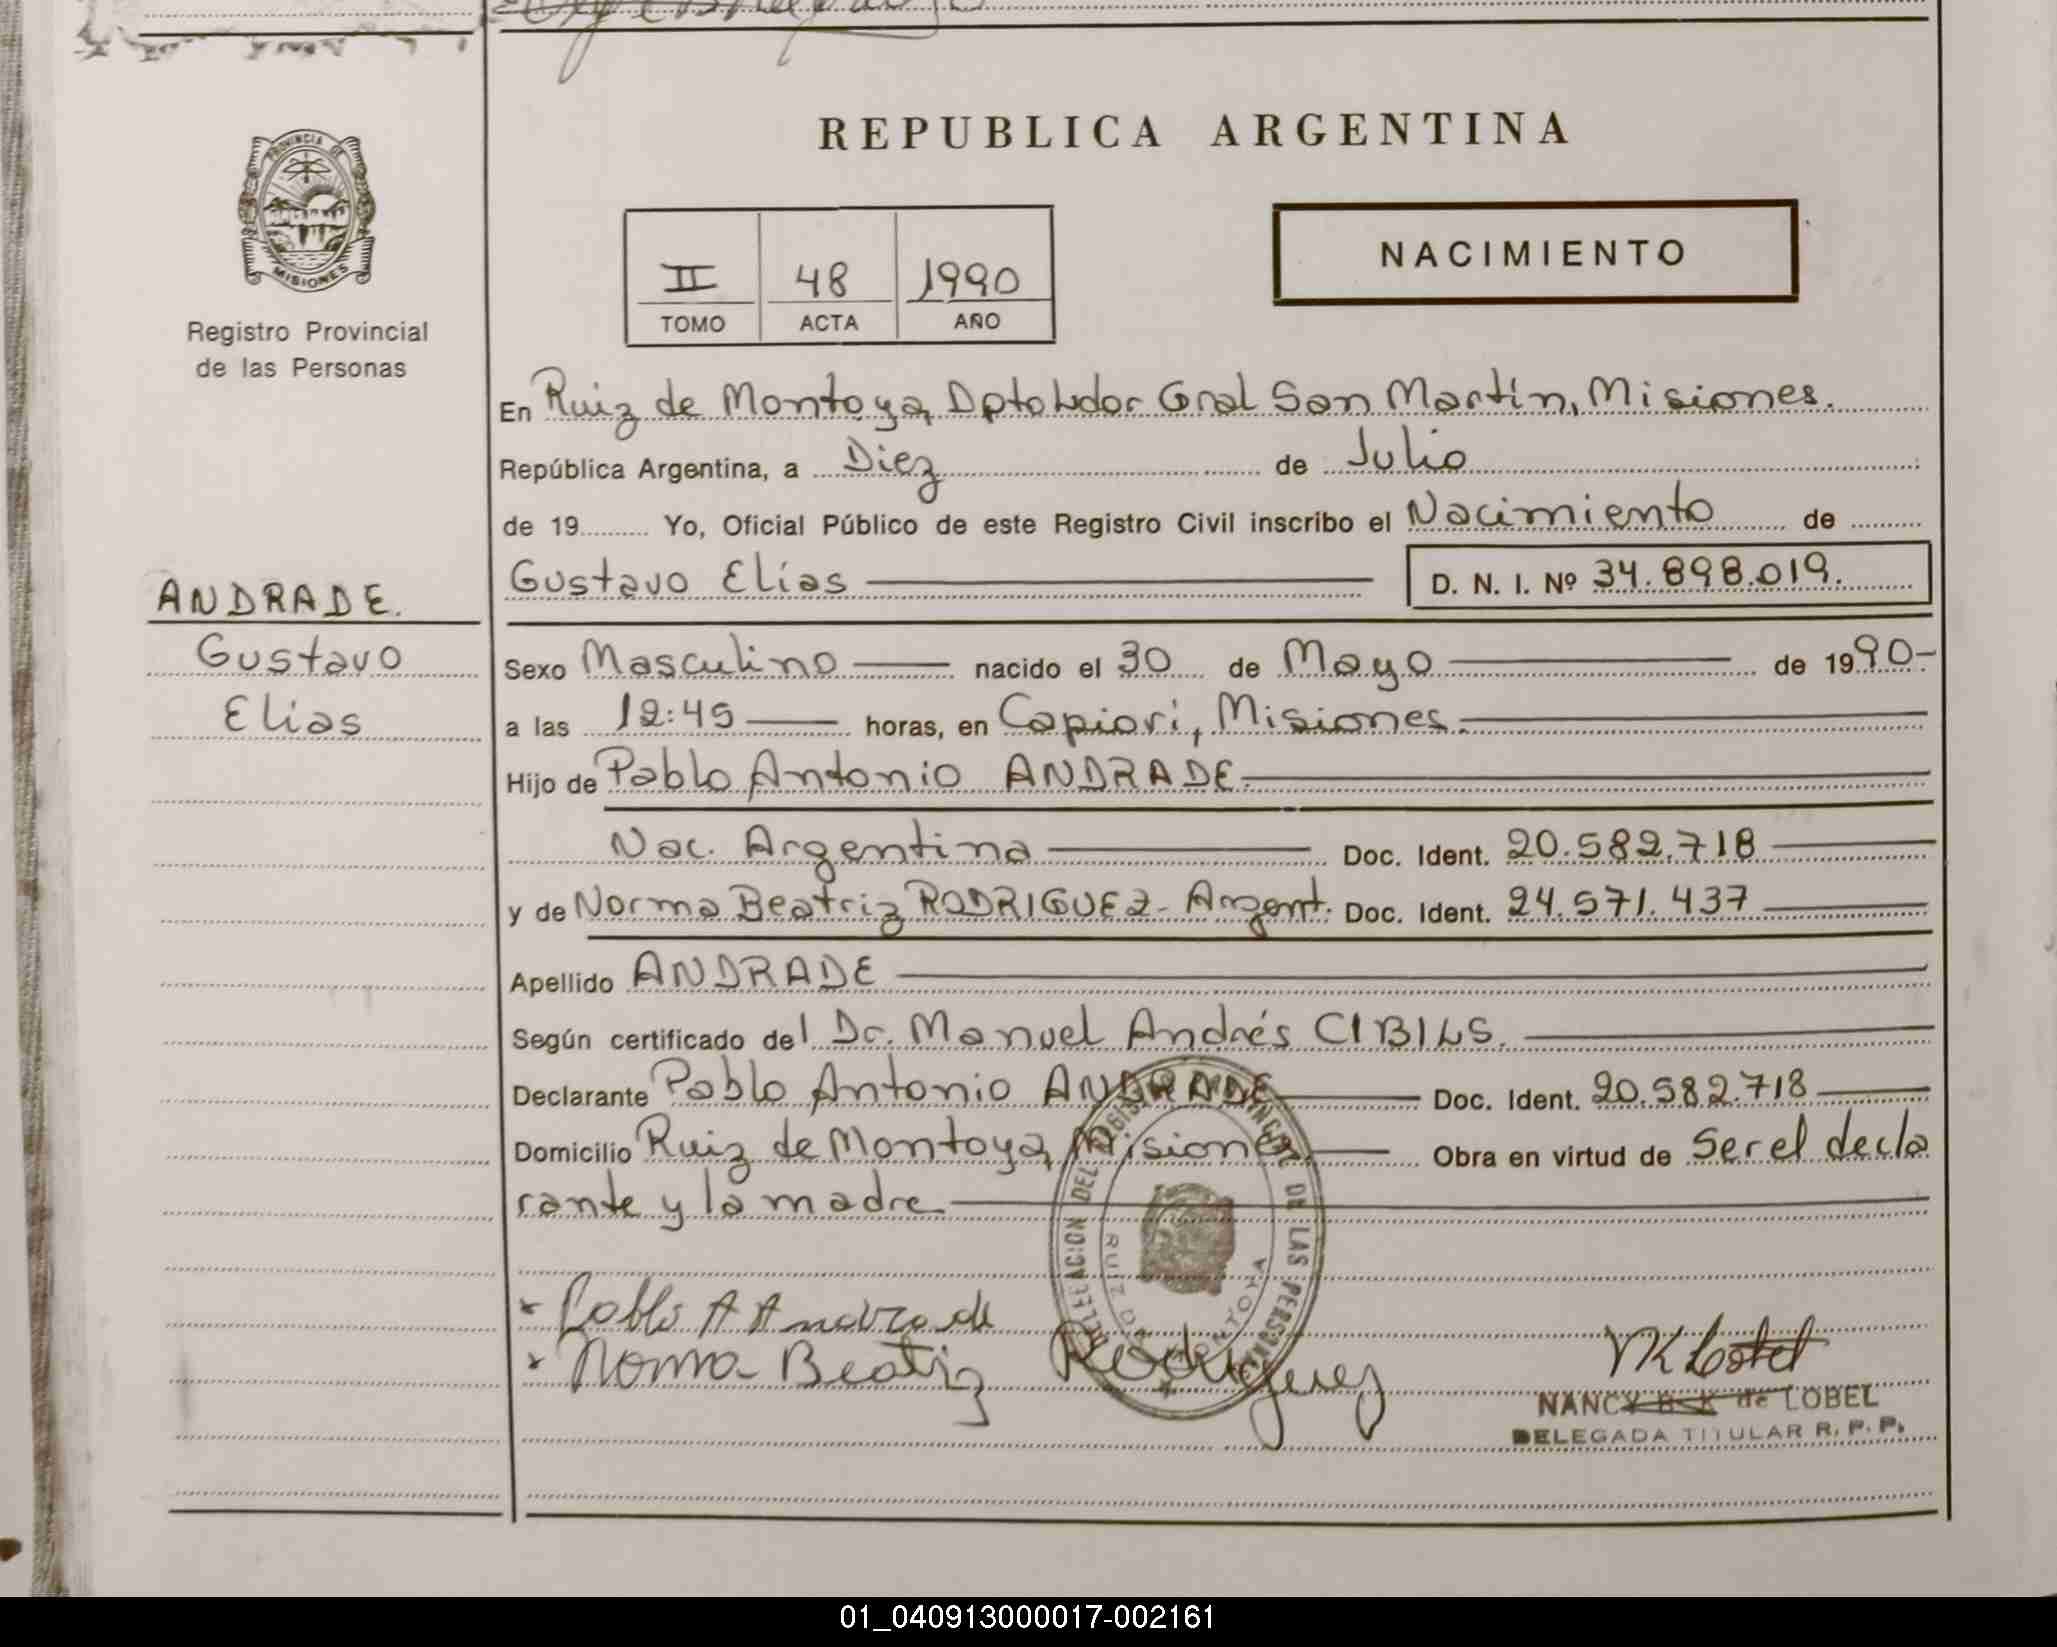 REPUBLICA ARGENTINA
PROVINCIA DE
MISIONES
Registro Provincial
de las Personas
NACIMIENTO
II 48 1990
TOMO ACTA AÑO
En Ruiz de Montoya, Dpto Ldor Gral San Martín, Misiones.
República Argentina, a Diez de Julio
de 19......... Yo, Oficial Público de este Registro Civil inscribo el Nacimiento de
Gustavo Elías D. N. I. Nº 34.898.019.
ANDRADE.
Gustavo
Elias
Sexo Masculino nacido el 30 de Mayo de 1990-
a las 12:45 horas, en Capiori, Misiones.
Hijo de Pablo Antonio ANDRADE.
Nac. Argentina Doc. Ident. 20.582.718
y de Norma Beatriz RODRIGUEZ- Argent. Doc. Ident. 24.571.437
Apellido ANDRADE
Según certificado del Dr. Manuel Andrés CIBILS.
Declarante Pablo Antonio ANDRADE Doc. Ident. 20.582.718
Domicilio Ruiz de Montoya, Misiones Obra en virtud de Ser el decla
rante y la madre
DELEGACION DEL REGISTRO PROVINCIAL DE LAS PERSONAS
RUIZ DE MONTOYA
Pablo A Andrade
Norma Beatriz Rodriguez
NANCY B. K de LOBEL
DELEGADA TITULAR R. P. P.
01_040913000017-002161